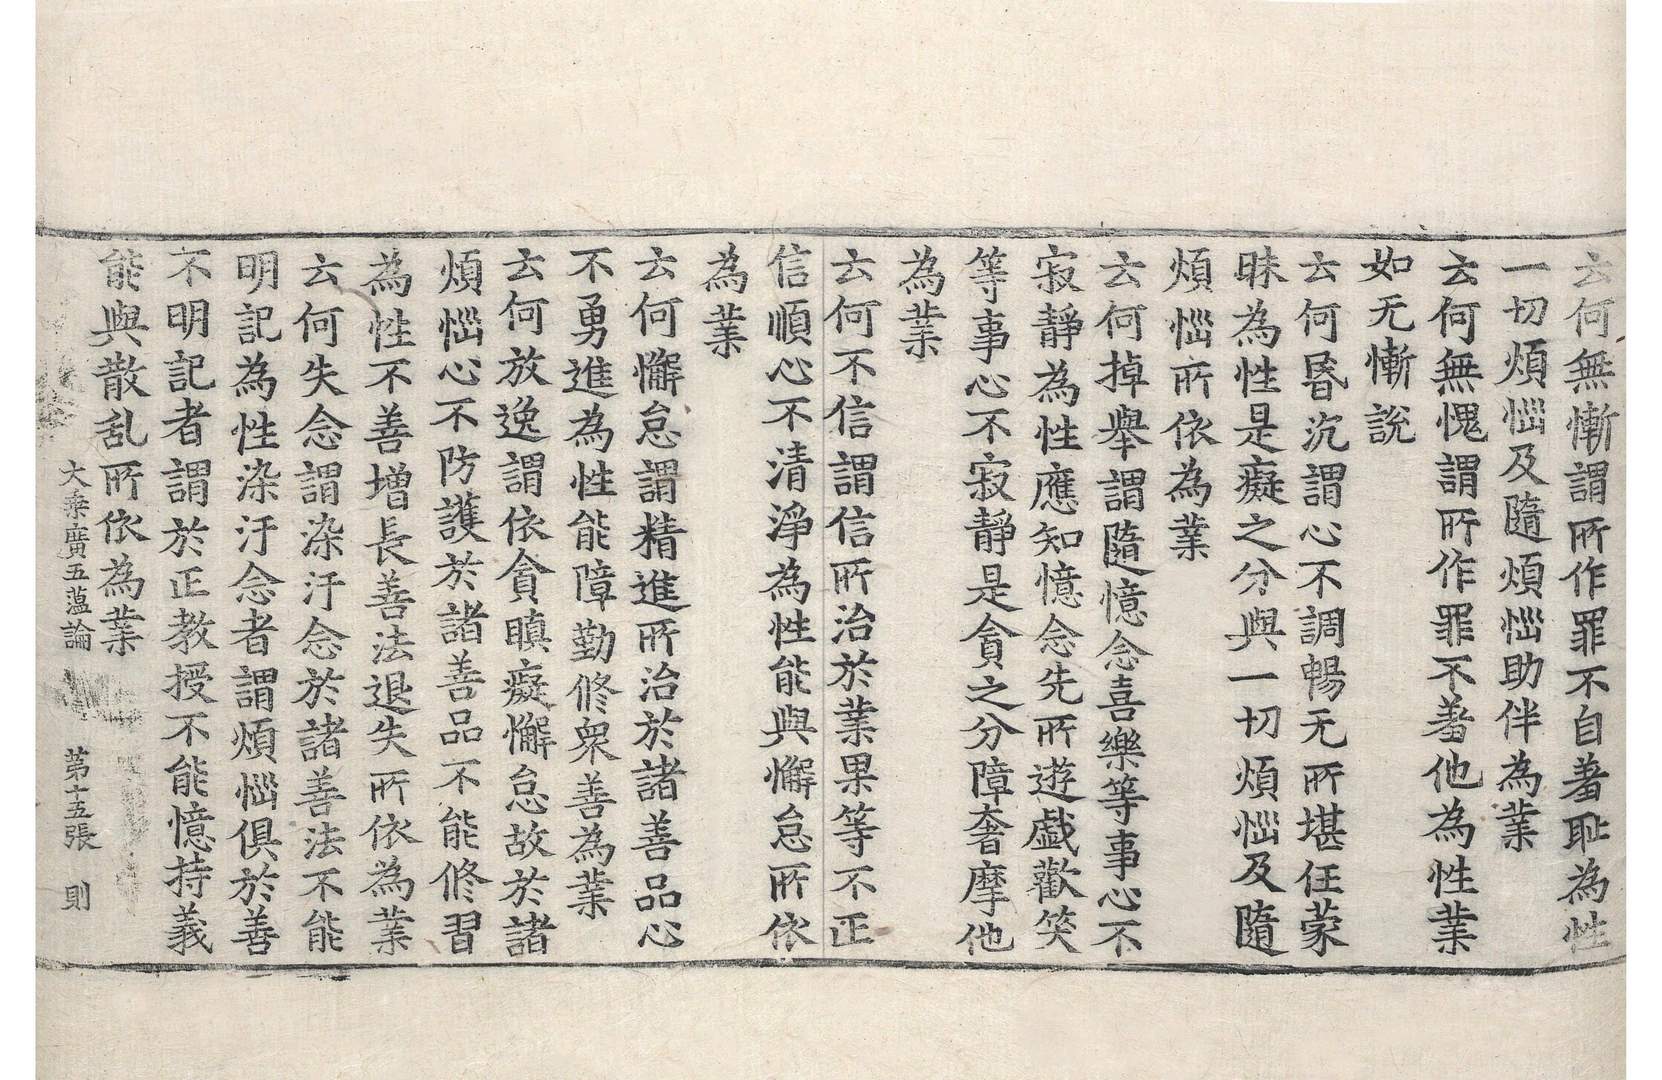 云何無慚謂所作罪不自羞恥為性
一切煩惱及隨煩惱助伴為業
云何無愧謂所作罪不羞他為性業
如无慚說
云何昬沉謂心不調暢无所堪任蒙
昧為性是癡之分與一切煩惱及隨
煩惱所依為業
云何掉舉謂隨憶念喜樂等事心不
寂靜為性應知憶念先所遊戲歡笑
等事心不寂靜是貪之分障奢摩他
為業
云何不信謂信所治於業果等不正
信順心不清淨為性能與懈怠所依
為業
云何懈怠謂精進所治於諸善品心
不勇進為性能障勤修衆善為業
云何放逸謂依貪瞋癡懈怠故於諸
煩惱心不防護於諸善品不能修習
為性不善增長善法退失所依為業
云何失念謂染汙念於諸善法不能
明記為性染汙念者謂煩惱俱於善
不明記者謂於正教授不能憶持義
能與散乱所依為業
大乘廣五薀論 第十五張 則